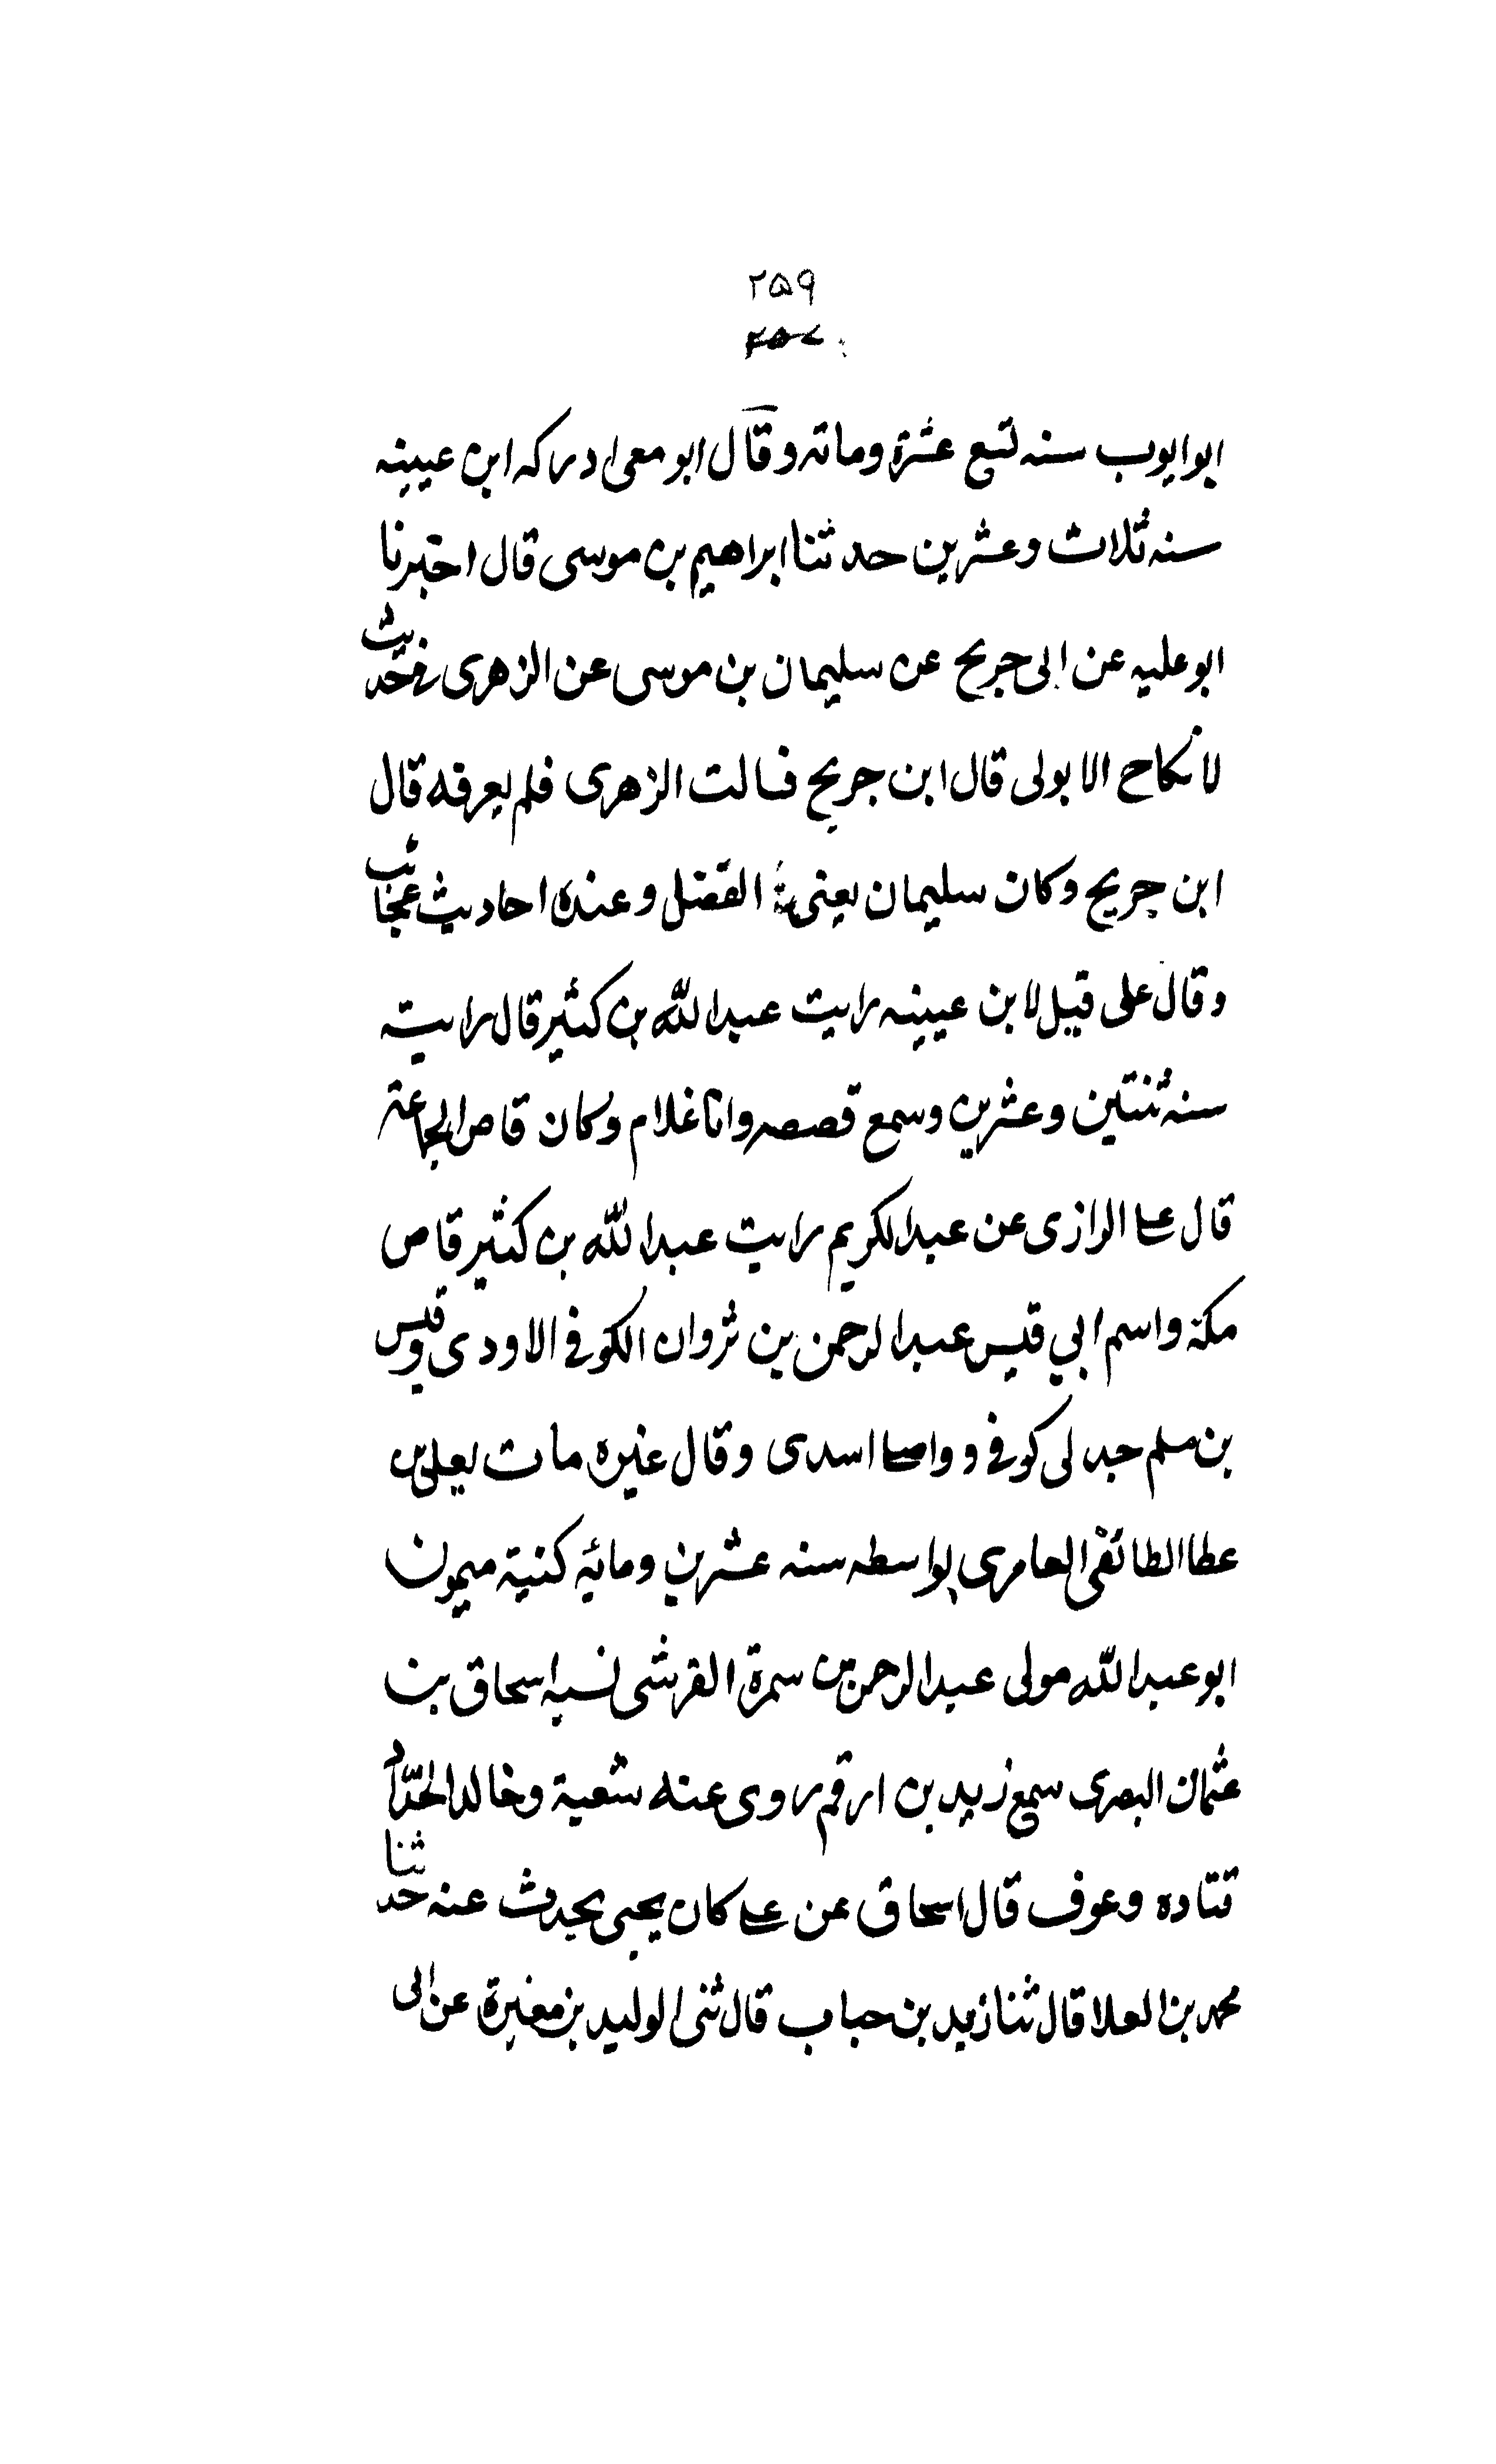 ۲۵۹
۲۵۷
ابوايوب سنه تسع عشرة وماته وقال ابو معى ادركه ابن عيينه
سنه ثلاث وعشرين حدثنا ابراهيم بن موسى قال اخبرنا
ابو عليه عن ابى جريح عن سليمان بن موسى عن الزهرى فى حديث
لا نكاح الا بولى قال ابن جريح فسالت الزهرى فلم يعرفه قال
ابن جريح وكان سليمان يعنى الفضل وعنده احاديث عجائب
وقال على قيل لابن عيينه رايت عبدالله بن كثير قال رايته
سنه ثنتين وعشرين وسمع قصصه وانا غلام وكان قاص الجاعة
قال على الرازى عن عبدالكريم رايت عبدالله بن كثير قاص
مكة واسم ابي قيس عبدالرحمن بن ثروان الكوفى الاودى وقيس
بن مسلم جدلى كوفى و واصل اسدى وقال غيره مات يعلى بن
عطا الطائفى العامرى بواسطه سنه عشرين ومائه كنية ميمون
ابو عبدالله مولى عبدالرحمن بن سمرة القرشى نسبه اسحاق بن
عثمان البصرى سمع زيد بن ارقم روى عنه شعبة وخالد الحذاء
قتاده وعوف قال اسحاق عن على كان يحيى يحدث عنه حدثنا
محمد بن العلا قال ثنا زيد بن حباب قال ثنى الوليد بن مغيرة عن ابى